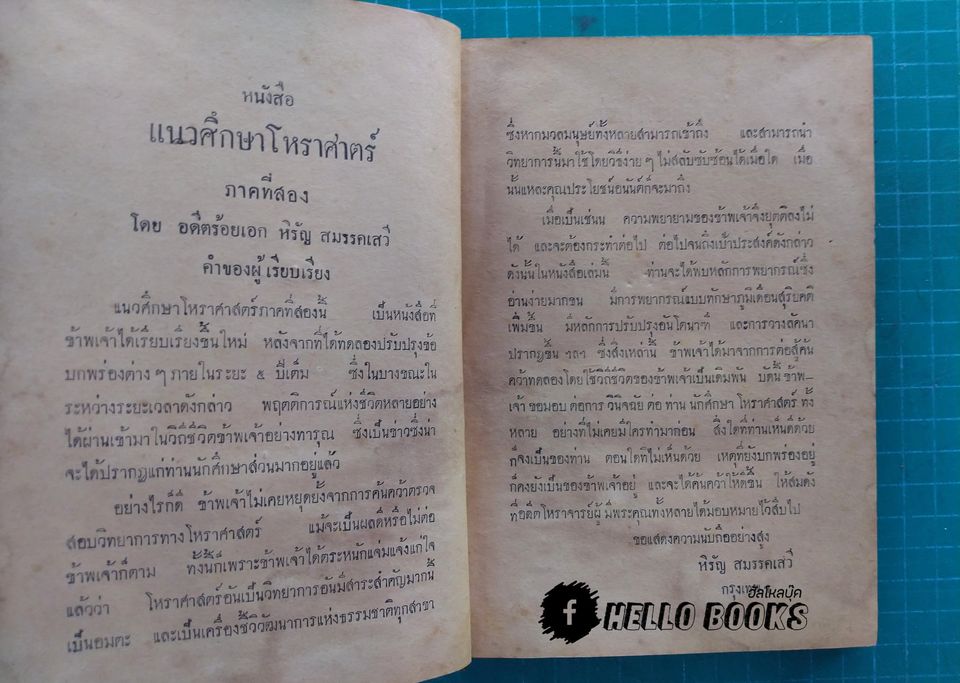 หนังสือ
แนวศึกษาโหราศาตร์
ภาคที่สอง
โดย อดีตร้อยเอก หิรัญ สมรรคเสวี
คำของผู้เรียบเรียง
แนวศึกษาโหราศาสตร์ภาคที่สองนี้ เป็นหนังสือที่
ข้าพเจ้าได้เรียบเรียงขึ้นใหม่ หลังจากที่ได้ทดลองปรับปรุงข้อ
บกพร่องต่าง ๆ ภายในระยะ ๕ ปีเต็ม ซึ่งในบางขณะใน
ระหว่างระยะเวลาดังกล่าว พฤตติการณ์แห่งชีวิตหลายอย่าง
ได้ผ่านเข้ามาในวิถีชีวิตข้าพเจ้าอย่างทารุณ ซึ่งเป็นข่าวซึ่งน่า
จะได้ปรากฎแก่ท่านนักศึกษาส่วนมากอยู่แล้ว
อย่างไรก็ดี ข้าพเจ้าไม่เคยหยุดยั้งจากการค้นคว้าตรวจ
สอบวิทยาการทางโหราศาสตร์ แม้จะเป็นผลดีหรือไม่ต่อ
ข้าพเจ้าก็ตาม ทั้งนี้ก็เพราะข้าพเจ้าได้ตระหนักแจ่มแจ้งแก่ใจ
แล้วว่า โหราศาสตร์อันเป็นวิทยาการอันมีสาระสำคัญมากนี้
เป็นอมตะ และเป็นเครื่องชี้วิวัฒนาการแห่งธรรมชาติทุกสาขา
ซึ่งหากมวลมนุษย์ทั้งหลายสามารถเข้าถึง และสามารถนำ
วิทยาการนี้มาใช้โดยวิธีง่าย ๆ ไม่สลับซับซ้อนได้เมื่อใด เมื่อ
นั้นแหละคุณประโยชน์อนันต์ก็จะมาถึง
เมื่อเป็นเช่นน ความพยายามของข้าพเจ้าจึงยุตติลงไม่
ได้ และจะต้องกระทำต่อไป ต่อไปจนถึงเป้าประสงค์ดังกล่าว
ดังนั้นในหนังสือเล่มนี้ ท่านจะได้พบหลักการพยากรณ์ซึ่ง
อ่านง่ายมากขน มีการพยากรณ์แบบทักษาภูมิเดือนสุริยคติ
เพิ่มขึ้น มีหลักการปรับปรุงอันโตนาที และการวางลัคนา
ปรากฎขึ้น ฯลฯ ซึ่งสิ่งเหล่านี้ ข้าพเจ้าได้มาจากการต่อสู้ค้น
คว้าทดลองโดยใช้วิถีชีวิตของข้าพเจ้าเป็นเดิมพัน บัดนี้ ข้าพ-
เจ้า ขอมอบ ต่อการ วินิจฉัย ต่อ ท่าน นักศึกษา โหราศาสตร์ ทั้ง
หลาย อย่างที่ไม่เคยมีใครทำมาก่อน สิ่งใดที่ท่านเห็นด้วย
ก็จึงเป็นของท่าน ตอนใดที่ไม่เห็นด้วย เหตุที่ยังบกพร่องอยู่
ก็คงยังเป็นของข้าพเจ้าอยู่ และจะได้ค้นคว้าให้ดีขึ้น ให้สมดัง
ที่อดีตโหราจารย์ผู้มีพระคุณทั้งหลายได้มอบหมายไว้สืบไป
ขอแสดงความนับถืออย่างสูง
หิรัญ สมรรคเสวี
กรุงเทพฯ
ฮัลโหลบุ๊ค
f HELLO BOOKS